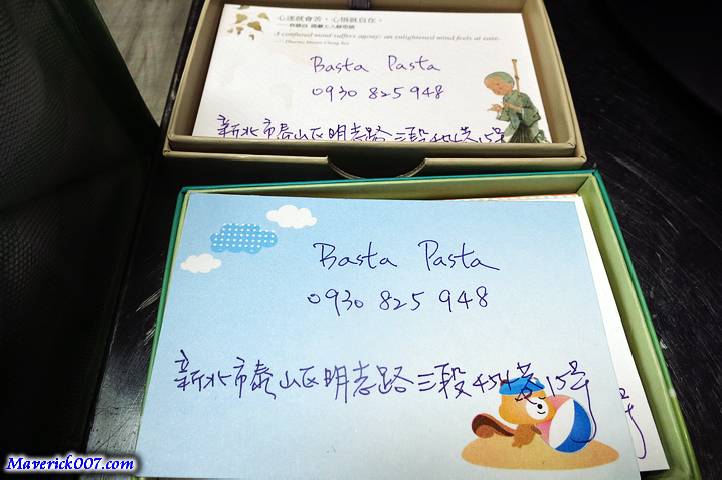 心迷就會苦，心悟就自在。
A confused mind suffers agony; an enlightened mind feels at ease.
—Dharma Master Cheng Yen
Basta Pasta
0930 825 948
新北市泰山区明志路三段454巷15号
Basta Pasta
0930 825 948
新北市泰山区明志路三段454巷15号
号
Maverick007.com